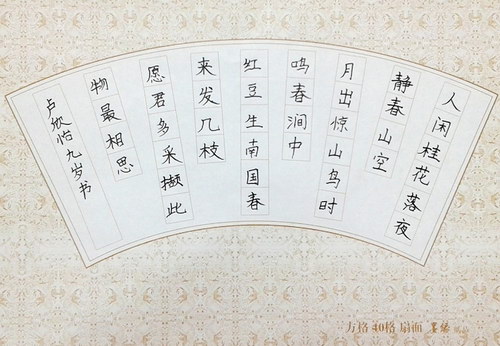 人闲桂花落夜
静春山空
月出惊山鸟时
鸣春涧中
红豆生南国春
来发几枝
愿君多采撷此
物最相思
卢欣怡九岁书
方格 40格 扇面